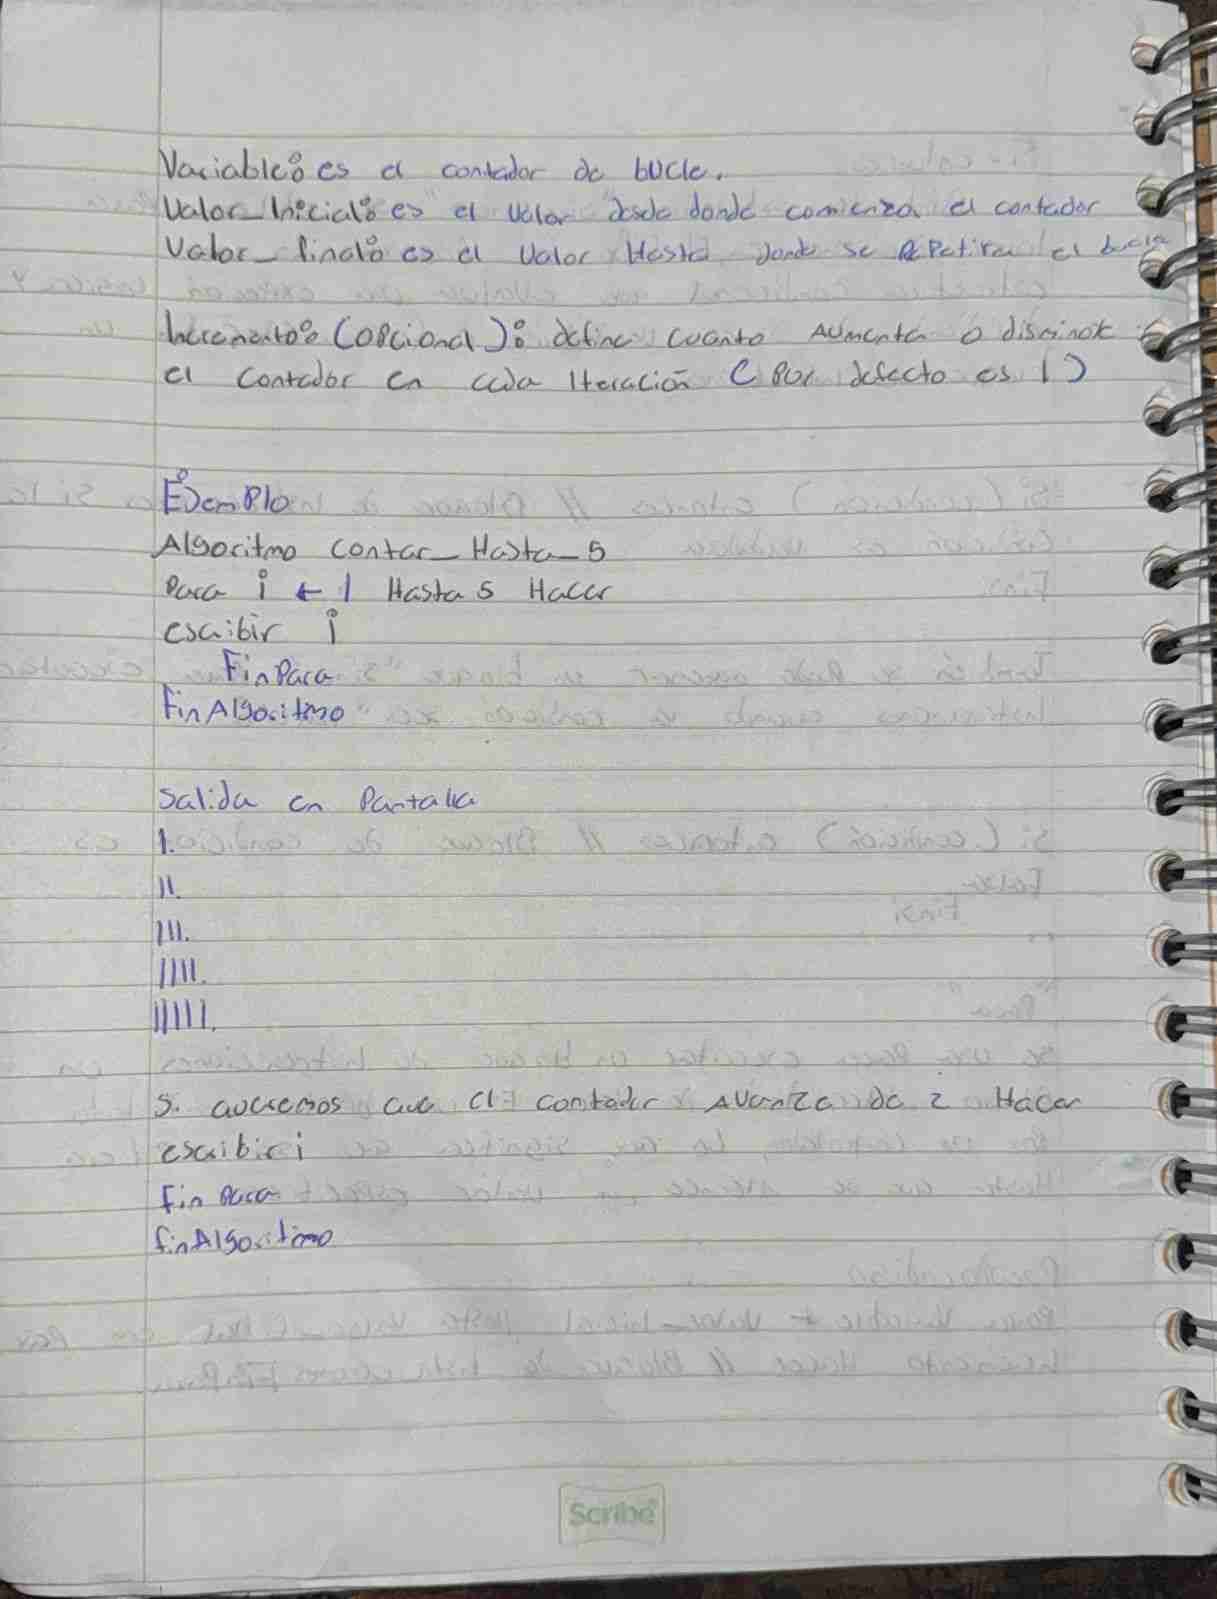 Variable: es el contador de bucle.
Valor_Inicial: es el valor desde donde comienza el contador
Valor_final: es el valor Hasta donde se Repetira el bucle
Incremento: (opcional): define cuanto Aumenta o disminuye
el contador en cada Iteración (Por defecto es 1)
Ejemplo
Algoritmo contar_Hasta_5
Para i ← 1 Hasta 5 Hacer
escribir i
FinPara
FinAlgoritmo
Salida en Pantalla
1.
11.
111.
1111.
11111.
Si queremos que el contador Avanza de 2 Hacer
escribir i
Fin Para
finAlgoritmo
Scribe